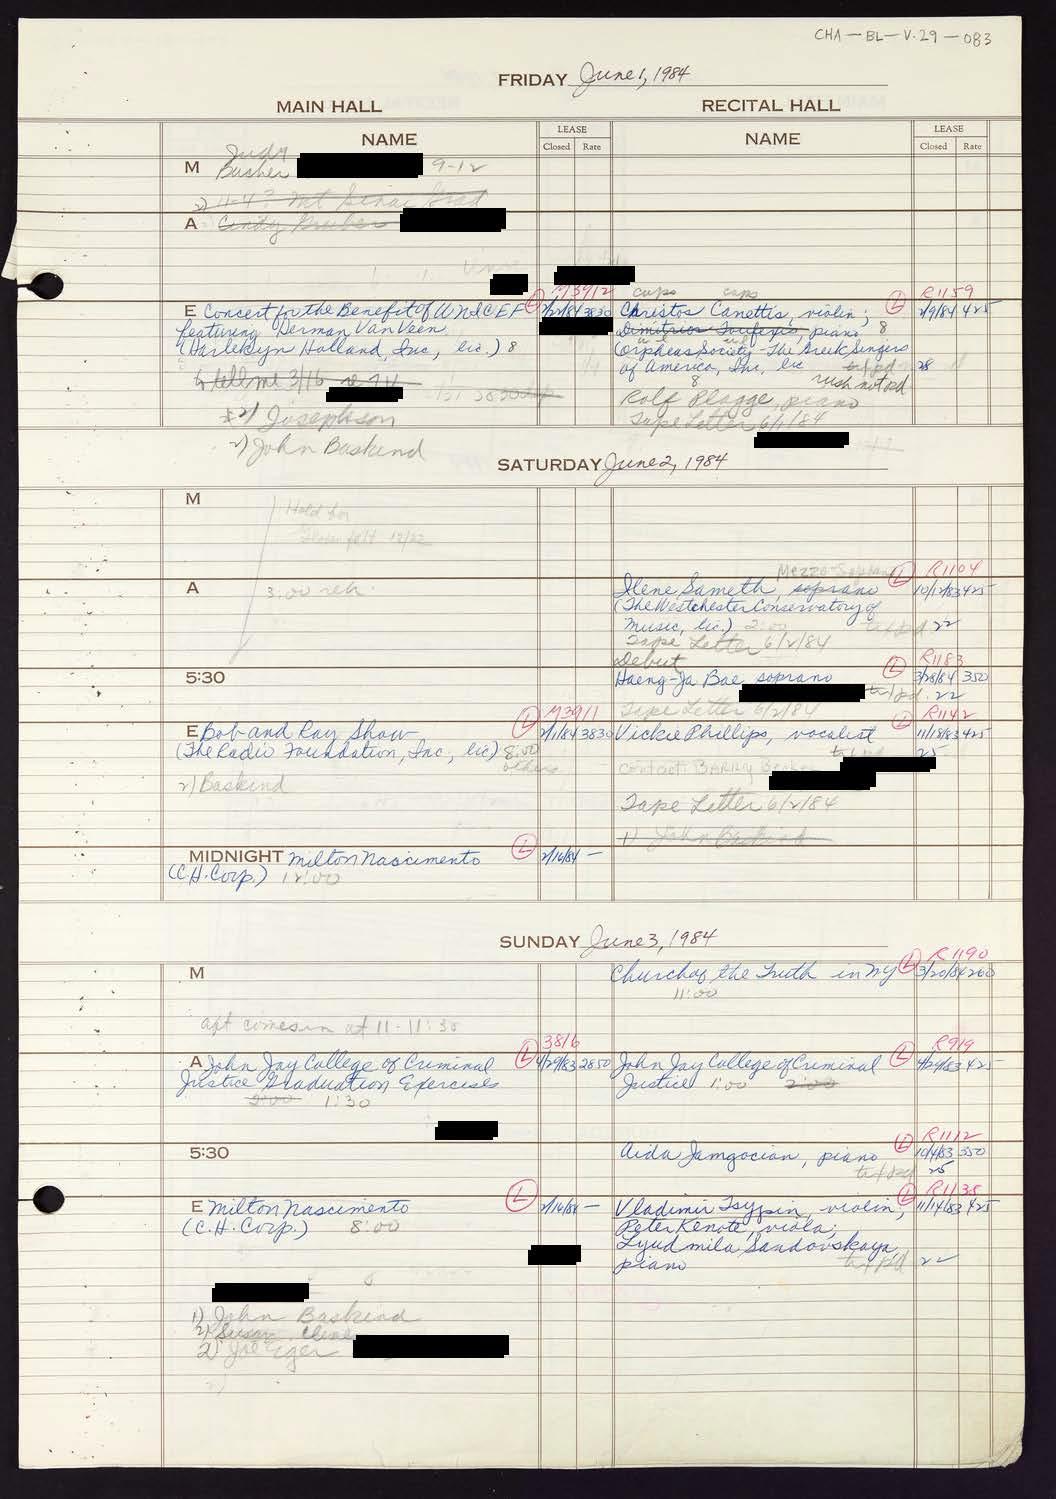 CHA-BL-V.29-083
FRIDAY June 1, 1984
MAIN HALL
RECITAL HALL
NAME
LEASE
Closed Rate
NAME
LEASE
Closed Rate
M Judy
Busher 9-12
2) 11-4? Mt Sinai Grad
A Cindy
M3912
E Concert for the Benefit of UNICEF L 2/2/84 3830
featuring Herman Van Veen
(Harlekyn Holland, Inc., lic.) 8
tell me 3/16
2) Josephson
2) John Baskind
cups caps
R1159
Christos Canettis, violin; L 2/9/84 425
Dimitrios Toufexis, piano 8
(Orpheus Society - The Greek Singers
of America, Inc, lic tx/pd 28
8 rush not pd
Rolf Plagge, piano
Tape Letter 6/1/84
SATURDAY June 2, 1984
M
Hold for
12/22
A 3:00 reh.
Mezzo-Soprano
R1104
Ilene Sameth, soprano L 10/12/83 425
(The Westchester Conservatory of
Music, lic.) 2:00 tx/pd 22
Tape Letter 6/2/84
Debut
5:30
R1183
Haeng-Ja Bae, soprano L 3/28/84 350
tx/pd. 22
Tape Letter 6/2/84
M3911
E Bob and Ray Show L 2/1/84 3830
(The Radio Foundation, Inc, lic) 8:00
others
2) Baskind
R1142
Vickie Phillips, vocalist L 11/18/83 425
25
contact: BARRY
Tape Letter 6/2/84
1) John Baskind
MIDNIGHT Milton Nascimento L 2/16/84 -
(C.H. Corp.) 12:00
SUNDAY June 3, 1984
M
R1190
Church of the Truth in NY L 3/20/84 200
11:00
apt comes in at 11-11:30
3816
A John Jay College of Criminal L 4/29/83 2850
Justice Graduation Exercises
2:00 1:30
R919
John Jay College of Criminal L 4/29/83 425
Justice 1:00 2:00
5:30
R1112
Aida Jamgocian, piano L 10/4/83 350
tx/pd 25
E Milton Nascimento L 2/16/84 -
(C.H. Corp.) 8:00
R1135
Vladimir Tsypin, violin; L 11/14/83 425
Peter Kenote, viola;
Lyudmila Sandovskaya,
piano tx/pd 22
1) John Baskind
2) Susan
2) Joe Eger
2)